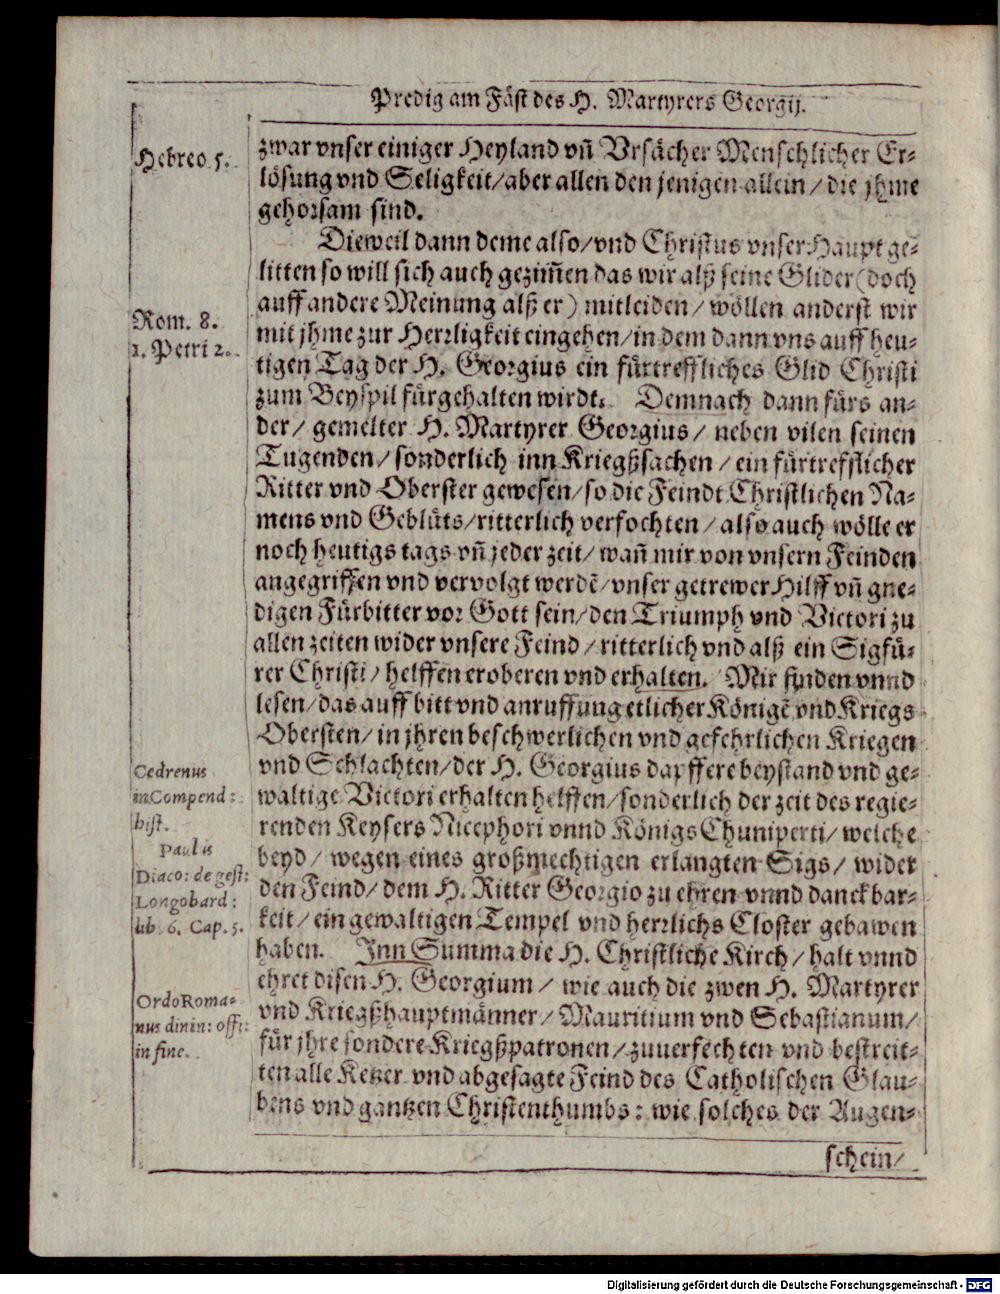 Predig am Fäst des H. Martyrers Georgij.
Hebreo. 5.
zwar vnser einiger Heyland vñ Vrsächer Menschlicher Er-
lösung vnd Seligkeit/aber allen den jenigen allein/die jhme
gehorsam sind.
Dieweil dann deme also/vnd Christus vnser Haupt ge-
litten so will sich auch gezim̃en das wir alß seine Glider (doch
auff andere Meinung alß er) mitleiden/wöllen anderst wir
Rom. 8.
1. Petri 2.
mit jhme zur Herrligkeit eingehen/in dem dann vns auff heu-
tigen Tag der H. Georgius ein fürtreffliches Glid Christi
zum Beyspil fürgehalten wirdt. Demnach dann fürs an-
der/ gemelter H. Martyrer Georgius/ neben vilen seinen
Tugenden/sonderlich inn Kriegßsachen/ein fürtrefflicher
Ritter vnd Oberster gewesen/so die Feindt Christlichen Na-
mens vnd Geblüts/ritterlich verfochten/also auch wölle er
noch heutigs tags vñ jeder zeit/wañ mir von vnsern Feinden
angegriffen vnd vervolgt werdē/vnser getrewer Hilff vñ gne-
digen Fürbitter vor Gott sein/den Triumph vnd Victori zu
allen zeiten wider vnsere Feind/ritterlich vnd alß ein Sigfü-
rer Christi/helffen eroberen vnd erhalten. Mir finden vnnd
lesen/das auff bitt vnd anruffung etlicher Königē vnd Kriegs
Obersten/in jhren beschwerlichen vnd gefehrlichen Kriegen
vnd Schlachten/der H. Georgius dapffere beystand vnd ge-
waltige Victori erhalten helffen/sonderlich der zeit des regie-
renden Keysers Nicephori vnnd Königs Chuniperti/welche
beyd/ wegen eines großmechtigen erlangten Sigs/ wider
den Feind/dem H. Ritter Georgio zu ehren vnnd danckbar-
keit/ein gewaltigen Tempel vnd herrlichs Closter gebawen
haben. Inn Summa die H. Christliche Kirch/halt vnnd
ehret disen H. Georgium/ wie auch die zwen H. Martyrer
vnd Kriegßhauptmänner/Mauritium vnd Sebastianum/
für jhre sondere Kriegßpatronen/zuuerfechten vnd bestreit-
ten alle Ketzer vnd abgesagte Feind des Catholischen Glau-
bens vnd gantzen Christenthumbs: wie solches der Augen-
Cedrenus
in Compend:
hist.
Paulis
Diaco: de gest:
Longobard:
lib. 6. Cap. 5.
Ordo Roma-
nus diuin: offi:
in fine.
schein/
Digitalisierung gefördert durch die Deutsche Forschungsgemeinschaft - DFG